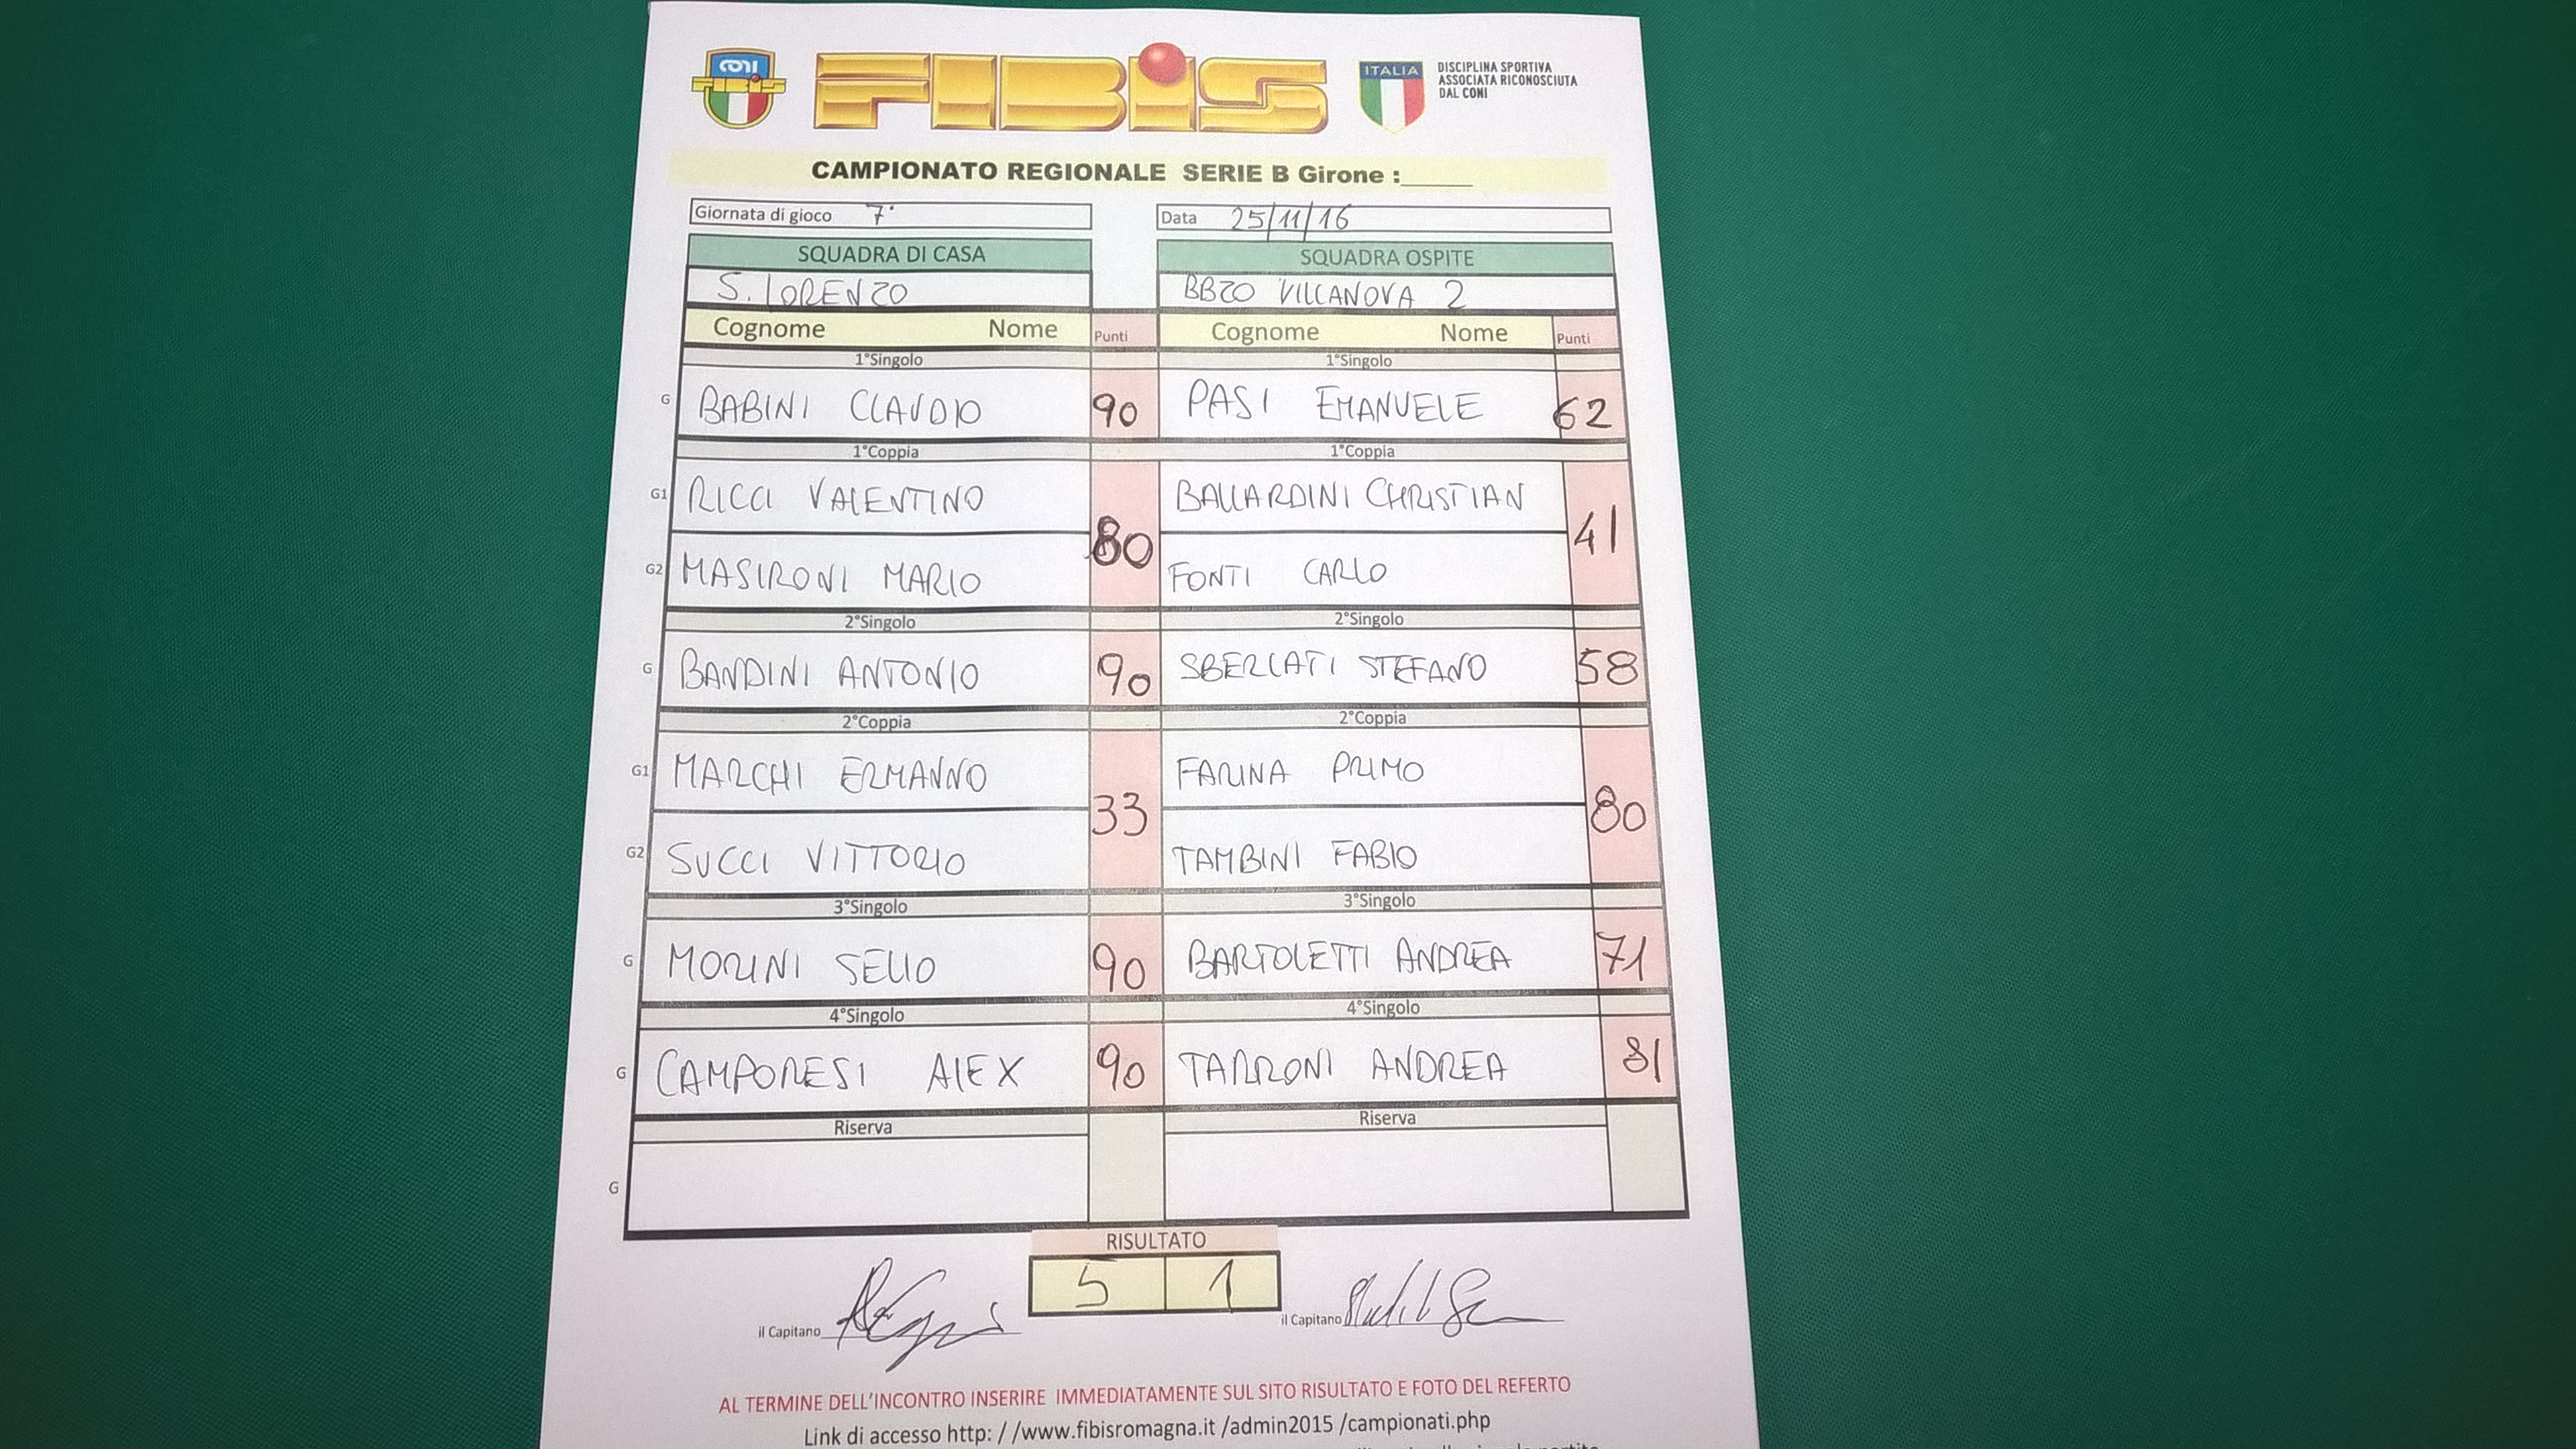 CONI
FIBIS
FIBiS
ITALIA
DISCIPLINA SPORTIVA
ASSOCIATA RICONOSCIUTA
DAL CONI
CAMPIONATO REGIONALE SERIE B Girone :_____
Giornata di gioco 7° Data 25/11/16
SQUADRA DI CASA SQUADRA OSPITE
S. LORENZO BBZO VILLANOVA 2
Cognome Nome Punti Cognome Nome Punti
1°Singolo 1°Singolo
G BABINI CLAUDIO 90 PASI EMANUELE 62
1°Coppia 1°Coppia
G1 RICCI VALENTINO BALLARDINI CHRISTIAN
80 41
G2 MASIRONI MARIO FONTI CARLO
2°Singolo 2°Singolo
G BANDINI ANTONIO 90 SBERLATI STEFANO 58
2°Coppia 2°Coppia
G1 MARCHI ERMANNO FARINA PRIMO
33 80
G2 SUCCI VITTORIO TAMBINI FABIO
3°Singolo 3°Singolo
G MORINI SELIO 90 BARTOLETTI ANDREA 71
4°Singolo 4°Singolo
G CAMPORESI ALEX 90 TARRONI ANDREA 81
Riserva Riserva
G
RISULTATO
5 1
il Capitano il Capitano
AL TERMINE DELL'INCONTRO INSERIRE IMMEDIATAMENTE SUL SITO RISULTATO E FOTO DEL REFERTO
Link di accesso http: / /www.fibisromagna.it /admin2015 /campionati.php